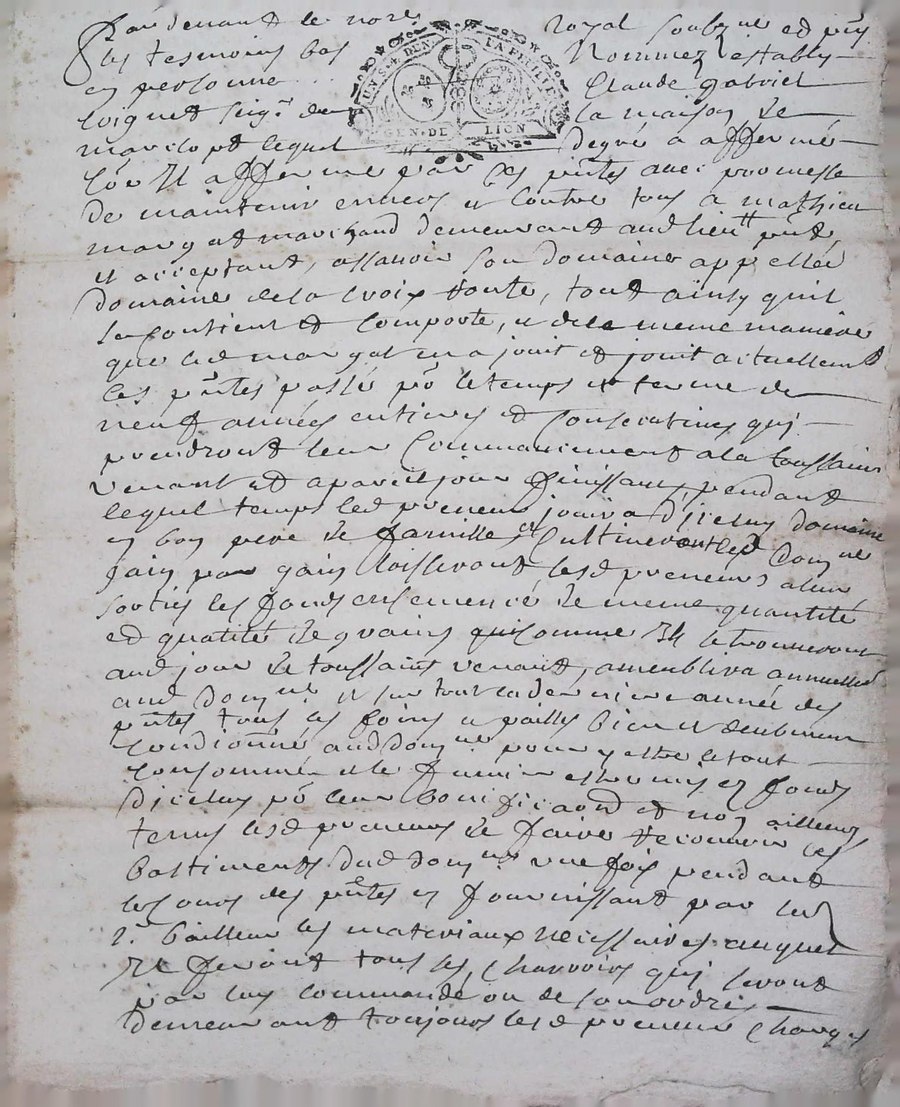 Par devant le nore royal soubzné et pñs
les tesmoins bas nommez estably
en personne Claude gabriel
seigr de la maison de
lequel degré a affermé
Et afferme par ces pñtes avec promesse
de maintenir envers et contre tous a mathieu
margat marchand demeurant aud lieu
et acceptant, assavoir son domaine appellée
domaine de la croix toute, tout ainsy quil
se contient et comporte, et de la meme maniere
que led margat en a jouit et jouit actuellemt
ces pñtes passé pr le temps et terme de
neuf années entieres et consecutives quj
prendront leur commancement a la toussaint
venant et a pareil jour finissant, pendant
lequel temps led preneur jouira diceluy domaine
en bon pere de famille et cultiveront led domne
gain par gain laisseront lesd preneurs a leur
sortie les fonds ensemencé de meme quantité
et qualité de grains comme Il le trouveront
aud jour de toussaint venant, ameublira annuellemt
aud domne et sur tout la derniere année des
pñtes tous les foins et pailles bien et deubment
conditionné aud domne pour y estre le tout
consommé et le fumier estre mis ez fonds
diceluy pr leur bonification et non ailleurs
tenus lesd preneurs de faire recouvrir les
bastiments dud domne une fois pendant
le cours des pñtes en fournissant par led
sr bailleur les materiaux necessaires auquel
Il feront tous les charroirs quj seront
par luy commandé ou de son ordre
demeurant toujours lesd preneurs chargés
GEN·DE LION
LA